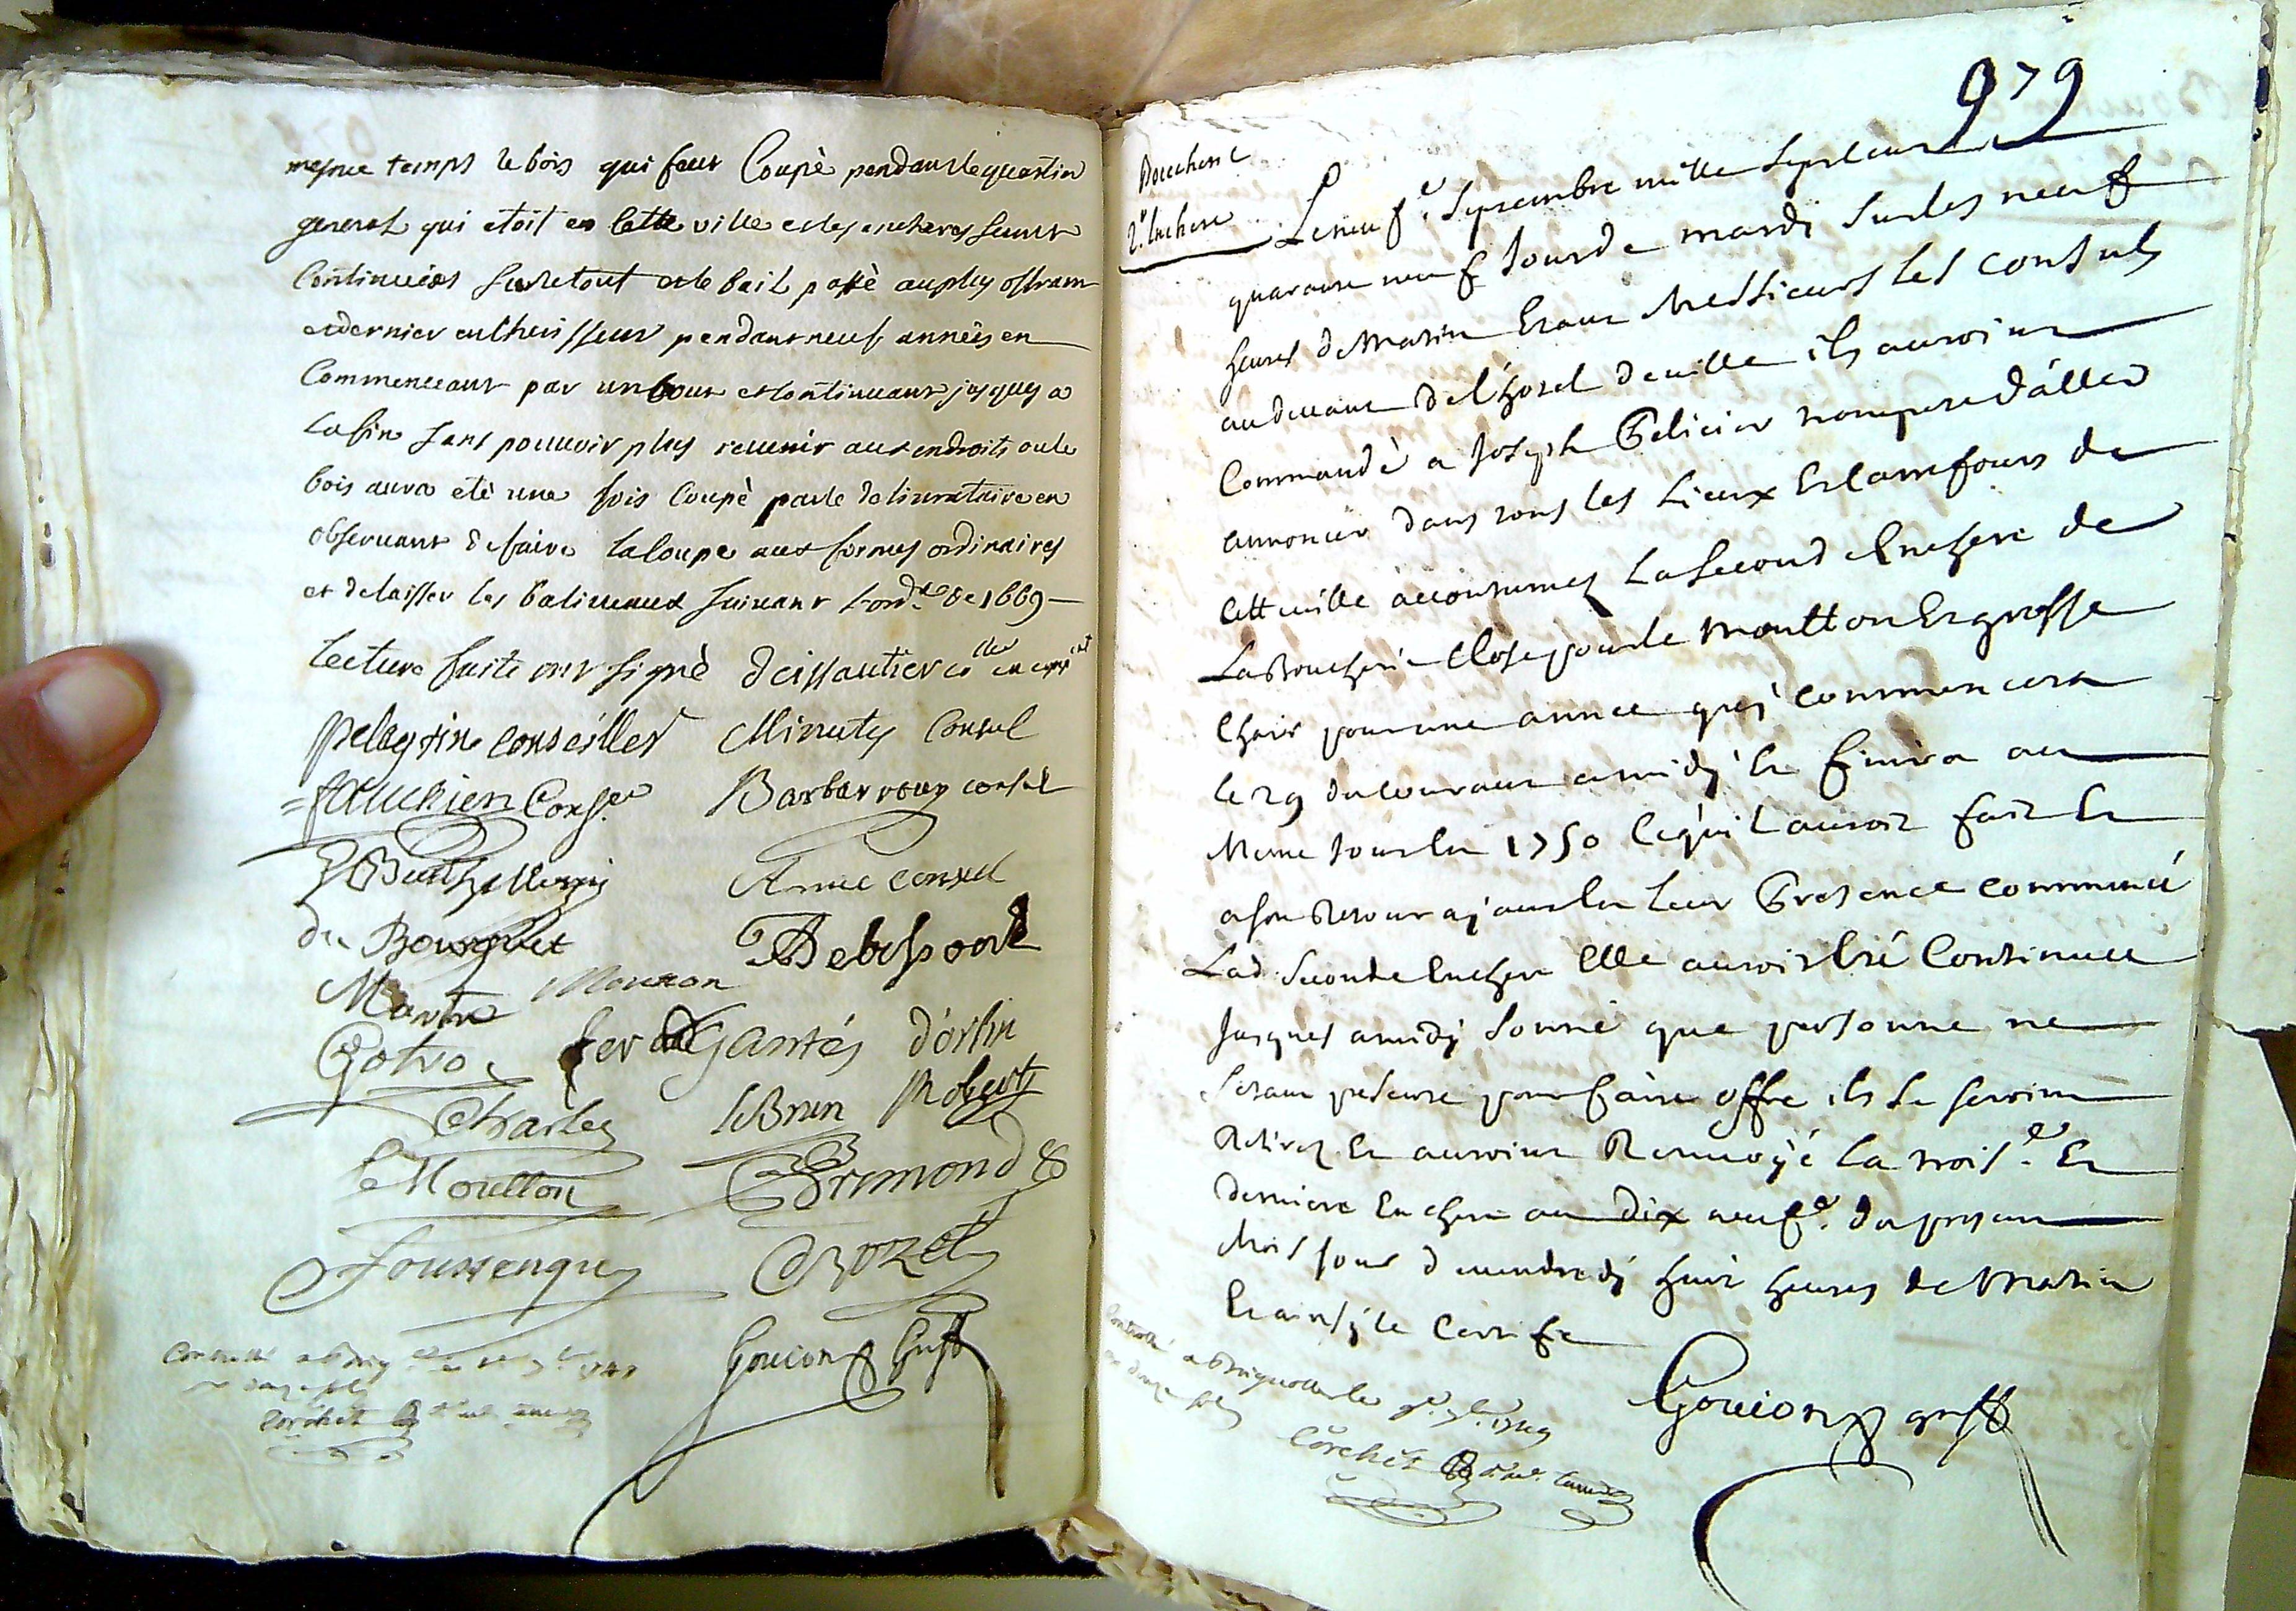 mesme temps le bois qui faut Coupè pendant le quartier
general qui etoit en Cette ville et les encheres seront
Continuées sur le tout et le bail passè au plus offrant
et dernier encherisseur pendant neuf années en
Commenceant par un bout et continuant jusques a
La fin sans pouvoir plus revenir aux endroits ou le
bois aura etè une fois Coupè par le deliurataire en
observant de faire la Coupe aux formes ordinaires
et de laisser les baliveaux suivant l'ord.ce de 1669
Lecture faite ont signè deissautier
pelegrin conseiller Minuty Consul
fauchier Cons.er Barbarroux consul
Barthelemy Amic consul
du Bourguet
Martin Mouton
Gotro ferd Gantés d'orlin
Charles leBrun Robert
le Moutton Bremond
Joussengues Crozet
Goujon Greff
Cortchet
979
Boucherie
2.e Enchere Le neuf.e Septembre mille Sept cent
quarante neuf Jour de mardi Sur les neuf
heures de Matin Etant Messieurs les consuls
au deuant de l'hotel de ville ils auroint
Commandè a Joseph Pelicier trompete d'aller
annoncer dans tous les Lieux Et Carrefours de
Cette ville accoutumez La Second Enchere de
La Boucherie Close pour le moutton Et grosse
Chair pour une annee qui commencera
le 29 du courant a midy Et finira au
Meme Jour En 1750 Ce qu'il auroit fait Et
a son Retour ayant En leur Presence commencé
Lad. Seconde Enchere Elle auroit Eté Continuee
Jusques a midy Sonné que personne ne
Setant presenté pour faire offre ils Se seroint
Retirez Et auroint Renvoyé la trois.e Et
Derniere Enchere au dix neuf.e du present
Mois Jour de vendredy huit heures de Matin
Et ainsy le Certifie
Goujon greff
Controllé a Brignolle le 9.e 7.bre 1749
en douze sols
Cortchet